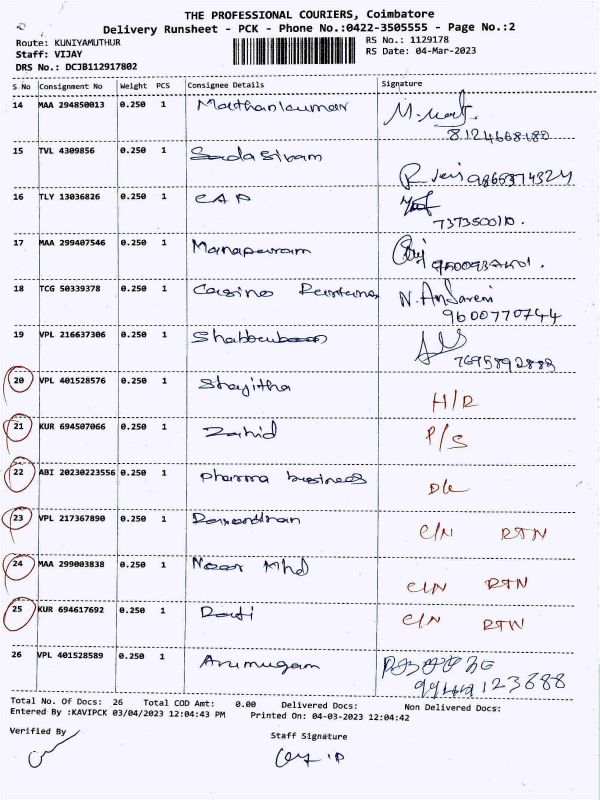 THE PROFESSIONAL COURIERS, Coimbatore
Delivery Runsheet - PCK - Phone No.:0422-3505555 - Page No.:2
Route: KUNIYAMUTHUR RS No.: 1129178
Staff: VIJAY RS Date: 04-Mar-2023
DRS No.: DCJB112917802
S No Consignment No Weight PCS Consignee Details Signature
14 MAA 294850013 0.250 1 Mathankumar
8124668180
15 TVL 4309856 0.250 1 Sadasivam
16 TLY 13036826 0.250 1 CAP
17 MAA 299407546 0.250 1 Manapuram
18 TCG 50339378 0.250 1 Casino
9600770744
19 VPL 216637306 0.250 1
7695892888
20 VPL 401528576 0.250 1 Shajitha H/R
21 KUR 694507066 0.250 1 Zahid P/S
22 ABI 20230223556 0.250 1 pharma business
23 VPL 217367890 0.250 1 C/N RTN
24 MAA 299003838 0.250 1 Noor Mhd C/N RTN
25 KUR 694617692 0.250 1 C/N RTN
26 VPL 401528589 0.250 1 Arumugam
Total No. Of Docs: 26 Total COD Amt: 0.00 Delivered Docs: Non Delivered Docs:
Entered By :KAVIPCK 03/04/2023 12:04:43 PM Printed On: 04-03-2023 12:04:42
Verified By Staff Signature